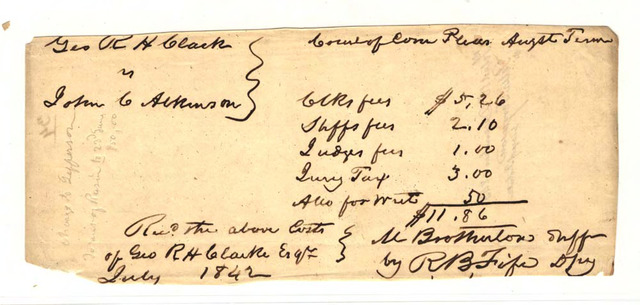 Geo R H Clark
Court of Com Pleas Augst Term
vs
John C Atkinson
Clks fees $5,26
Shffs fees 2.10
Judges fees 1.00
Jury Tax 3.00
Also for Writ 50
$11.86
Recd the above Costs
of Geo R H Clarke Esqr
July 1842
M Brotherton Shff
by R B Fife Dpy